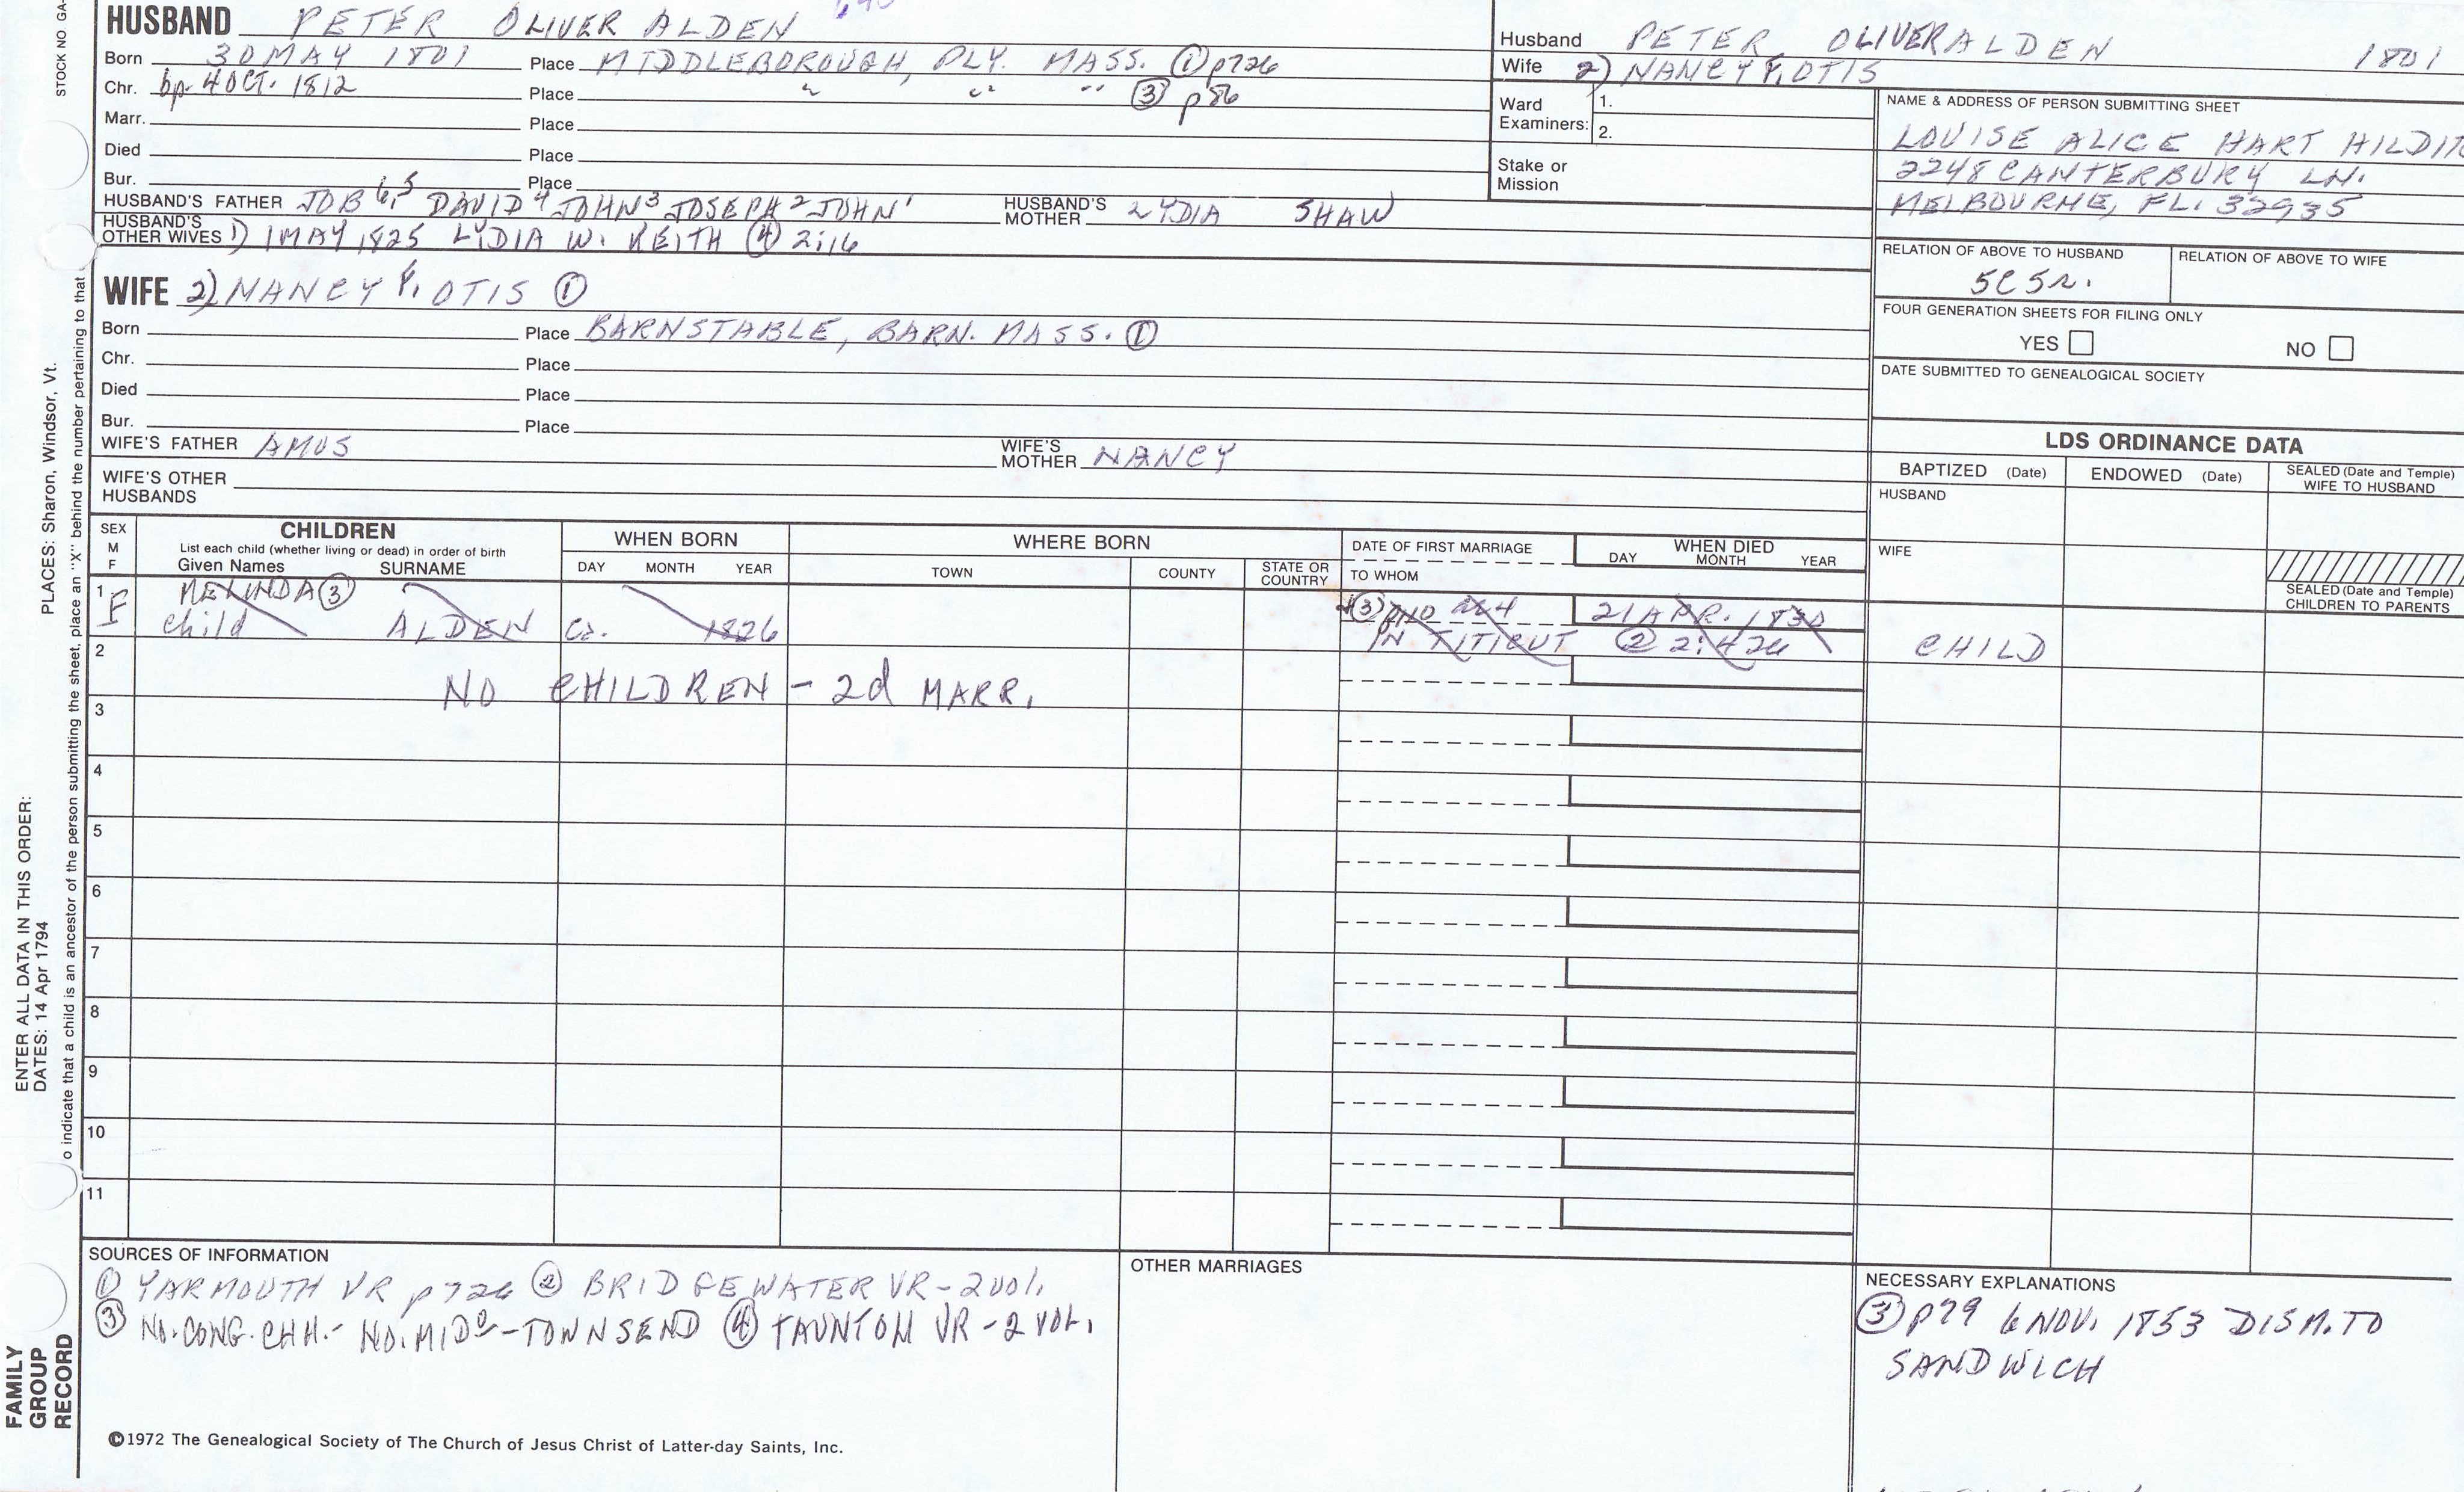 STOCK NO GA-
HUSBAND PETER OLIVER ALDEN
Born 30 MAY 1801 Place MIDDLEBOROUGH, PLY. MASS. ① p726
Chr. bp. 4 OCT. 1812 Place " " " ③ p86
Marr. Place
Died Place
Bur. Place
HUSBAND'S FATHER JOB 6,5 DAVID 4 JOHN 3 JOSEPH 2 JOHN 1 HUSBAND'S MOTHER LYDIA SHAW
HUSBAND'S OTHER WIVES 1) 1 MAY 1825 LYDIA W. KEITH ④ 2:16
WIFE 2) NANCY F. OTIS ①
Born Place BARNSTABLE, BARN. MASS. ①
Chr. Place
Died Place
Bur. Place
WIFE'S FATHER AMOS WIFE'S MOTHER NANCY
WIFE'S OTHER HUSBANDS
Husband PETER OLIVER ALDEN 1801
Wife 2) NANCY F. OTIS
Ward Examiners: 1.
2.
Stake or Mission
NAME & ADDRESS OF PERSON SUBMITTING SHEET
LOUISE ALICE HART
2248 CANTERBURY LN.
MELBOURNE, FL. 32935
RELATION OF ABOVE TO HUSBAND RELATION OF ABOVE TO WIFE
5C5R.
FOUR GENERATION SHEETS FOR FILING ONLY
YES NO
DATE SUBMITTED TO GENEALOGICAL SOCIETY
LDS ORDINANCE DATA
BAPTIZED (Date) ENDOWED (Date) SEALED (Date and Temple) WIFE TO HUSBAND
HUSBAND
WIFE
SEALED (Date and Temple) CHILDREN TO PARENTS
SEX M F CHILDREN WHEN BORN WHERE BORN DATE OF FIRST MARRIAGE WHEN DIED
List each child (whether living or dead) in order of birth
Given Names SURNAME DAY MONTH YEAR TOWN COUNTY STATE OR COUNTRY TO WHOM DAY MONTH YEAR
1 F MELINDA ③ ③ 21 APR. 1830
child ALDEN ca. 1826 IN TITICUT ② 2:426 CHILD
2
NO CHILDREN - 2d MARR.
3
4
5
6
7
8
9
10
11
SOURCES OF INFORMATION
① YARMOUTH VR p726 ② BRIDGEWATER VR - 2 vol.
③ NO. CONG. CHH. - NO. MIDD - TOWNSEND ④ TAUNTON VR - 2 VOL.
OTHER MARRIAGES
NECESSARY EXPLANATIONS
③ p79 6 NOV. 1853 DISM. TO
SANDWICH
©1972 The Genealogical Society of The Church of Jesus Christ of Latter-day Saints, Inc.
ENTER ALL DATA IN THIS ORDER:
DATES: 14 Apr 1794 PLACES: Sharon, Windsor, Vt.
o indicate that a child is an ancestor of the person submitting the sheet, place an "X" behind the number pertaining to that
FAMILY
GROUP
RECORD